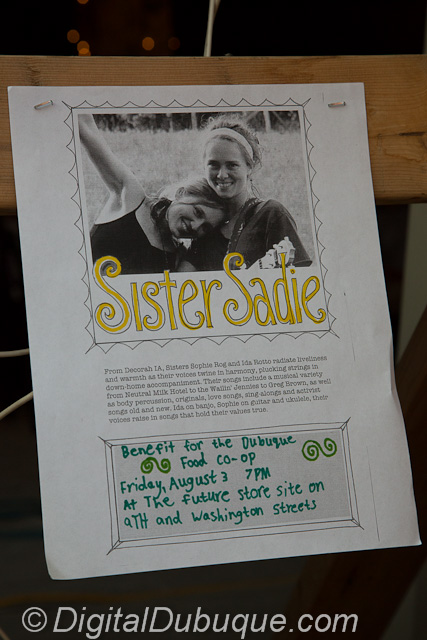 Sister Sadie
From Decorah IA, Sisters Sophie Rog and Ida Rotto radiate liveliness
and warmth as their voices twine in harmony, plucking strings in
down-home accompaniment. Their songs include a musical variety
from Neutral Milk Hotel to the Wailin' Jennies to Greg Brown, as well
as body percussion, originals, love songs, sing-alongs and activist
songs old and new. Ida on banjo, Sophie on guitar and ukulele, their
voices raise in songs that hold their values true.
Benefit for the Dubuque
Food Co-op
Friday, August 3 7PM
At The future store site on
9TH and Washington Streets
© DigitalDubuque.com